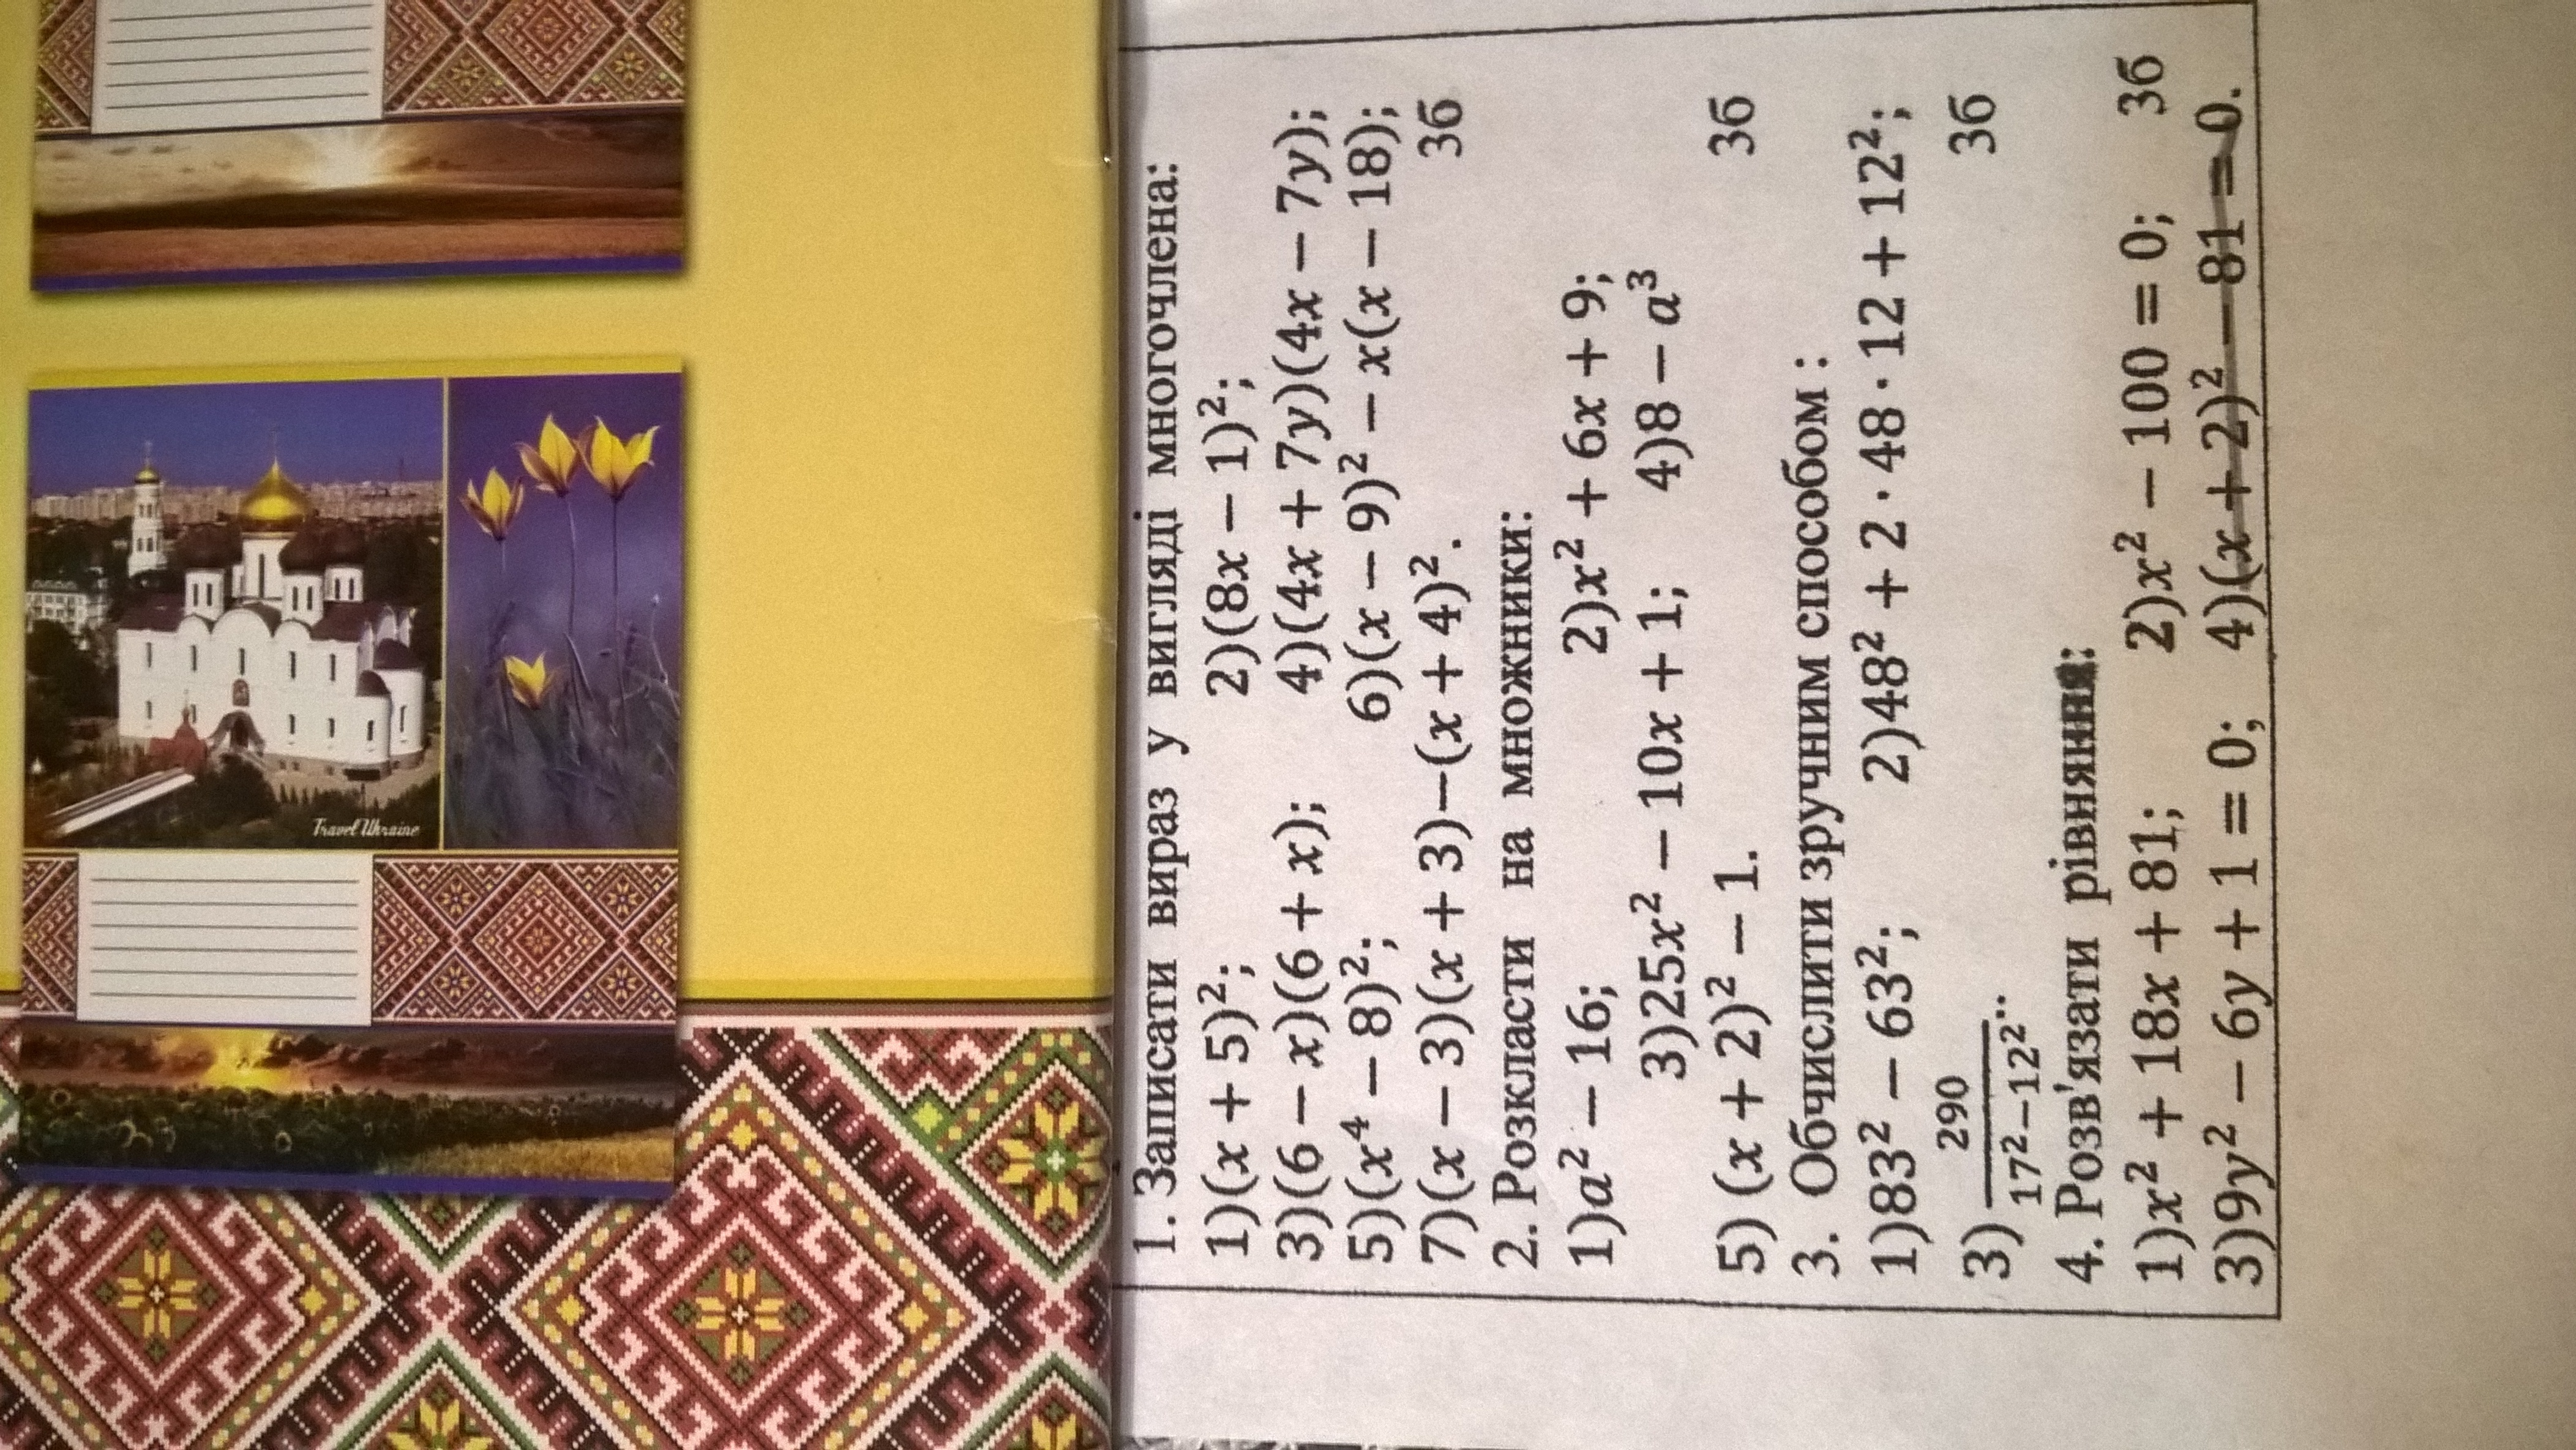 Travel Ukraine
1. Записати вираз у вигляді многочлена:
1)(x + 5)²; 2)(8x − 1)²;
3)(6 − x)(6 + x); 4)(4x + 7y)(4x − 7y);
5)(x⁴ − 8)²; 6)(x − 9)² − x(x − 18);
7)(x − 3)(x + 3)−(x + 4)². 3б
2. Розкласти на множники:
1)a² − 16; 2)x² + 6x + 9;
3)25x² − 10x + 1; 4)8 − a³
5) (x + 2)² − 1. 3б
3. Обчислити зручним способом :
1)83² − 63²; 2)48² + 2 · 48 · 12 + 12²;
3) 290 / 17²−12² .. 3б
4. Розв'язати рівняння:
1)x² + 18x + 81; 2)x² − 100 = 0; 3б
3)9y² − 6y + 1 = 0; 4)(x + 2)² − 81 = 0.